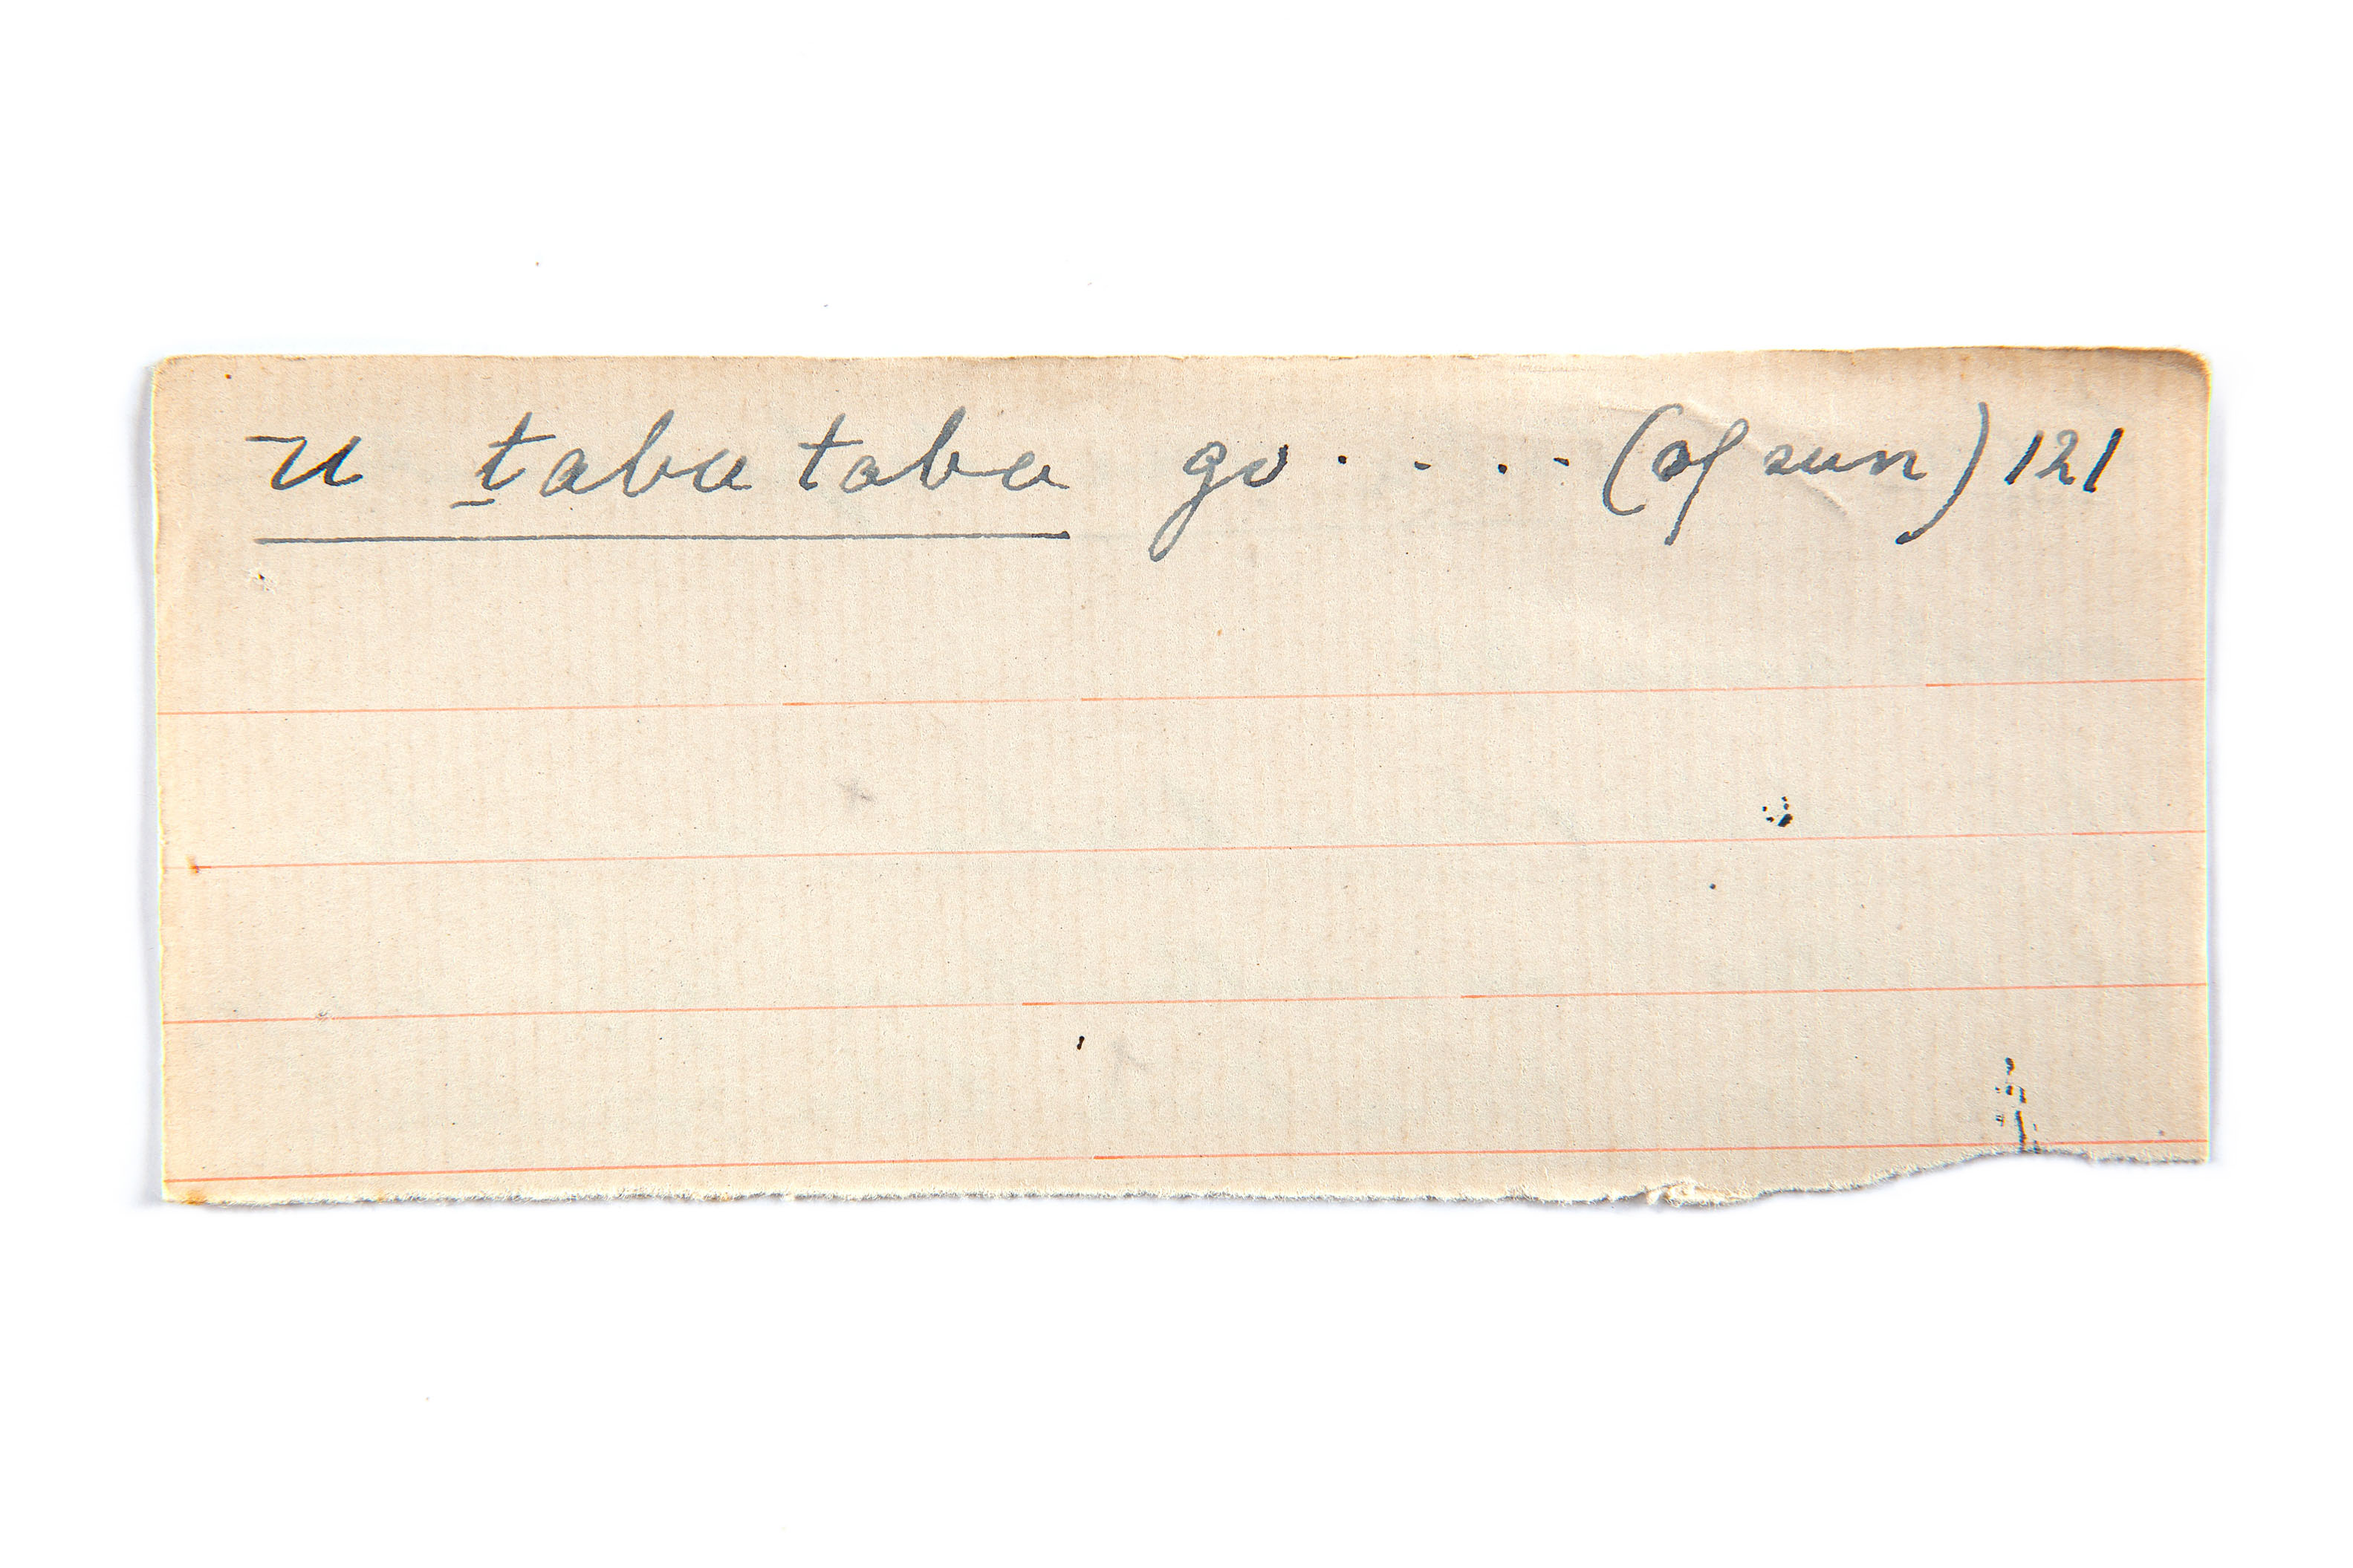 u ṯaba taba go . . . . (of sun) 121